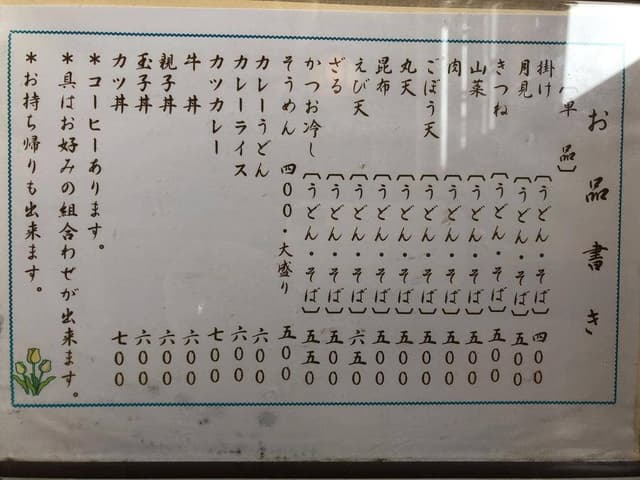 お品書き
〔単品〕
掛け〔うどん・そば〕四〇〇
月見〔うどん・そば〕五〇〇
きつね〔うどん・そば〕五〇〇
山菜〔うどん・そば〕五〇〇
肉〔うどん・そば〕五〇〇
ごぼう天〔うどん・そば〕五〇〇
丸天〔うどん・そば〕五〇〇
昆布〔うどん・そば〕五〇〇
えび天〔うどん・そば〕六五〇
ざる〔うどん・そば〕五五〇
かつお冷し〔うどん・そば〕五五〇
そうめん 四〇〇・大盛り 五〇〇
カレーうどん 六〇〇
カレーライス 六〇〇
カツカレー 七〇〇
牛丼 六〇〇
親子丼 六〇〇
玉子丼 六〇〇
カツ丼 七〇〇
*コーヒーあります。
*具はお好みの組合わせが出来ます。
*お持ち帰りも出来ます。